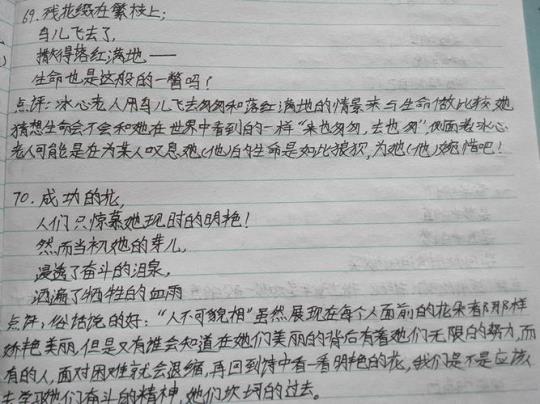 69.残花缀在繁枝上；
鸟儿飞去了，
撒得落红满地——
生命也是这般的一瞥吗？
点评：冰心老人用鸟儿飞去匆匆和落红满地的情景来与生命做比较她
猜想生命会不会和她在世界中看到的一样“来也匆匆，去也匆”侧面老冰心
老人可能是在为某人叹息她(他)的生命是如此狼狈，为她(他)婉惜吧！
70.成功的花，
人们只惊慕她现时的明艳！
然而当初她的芽儿，
浸透了奋斗的泪泉，
洒遍了牺牲的血雨
点评：俗话说的好：“人不可貌相”虽然展现在每个人面前的花朵都那样
娇艳美丽，但是又有谁会知道在她们美丽的背后有着她们无限的努力，而
有的人，面对困难就会退缩，再回到诗中看一看明艳的花，我们是不是应该
去学取她们奋斗的精神，她们坎坷的过去。